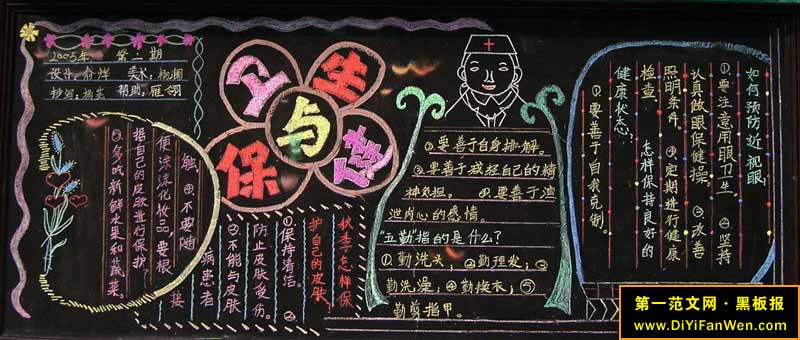 2005年 第二期
设计:
美术:
抄写:
帮助:
卫生与保健
如何预防近视眼
①要注意用眼卫生。②坚持
认真做眼保健操。③改善
照明条件。④定期进行健康
检查。 怎样保持良好的
健康状态?
①要善于自我克制。
②要善于自身排解。
③要善于减轻自己的精
神负担。 ④要善于渲
泄内心的感情。
“五勤”指的是什么?
①勤洗头;②勤理发;③
勤洗澡;④勤换衣;⑤
勤剪指甲。
秋季怎样保
护自己的皮肤
①保持清洁。②
防止皮肤受伤。
③不能与皮肤
病患者
接
触。④不要随
便涂抹化妆品,要根
据自己的皮肤进行保护。
⑤多吃新鲜水果和蔬菜。
第一范文网·黑板报
www.DiYiFanWen.com